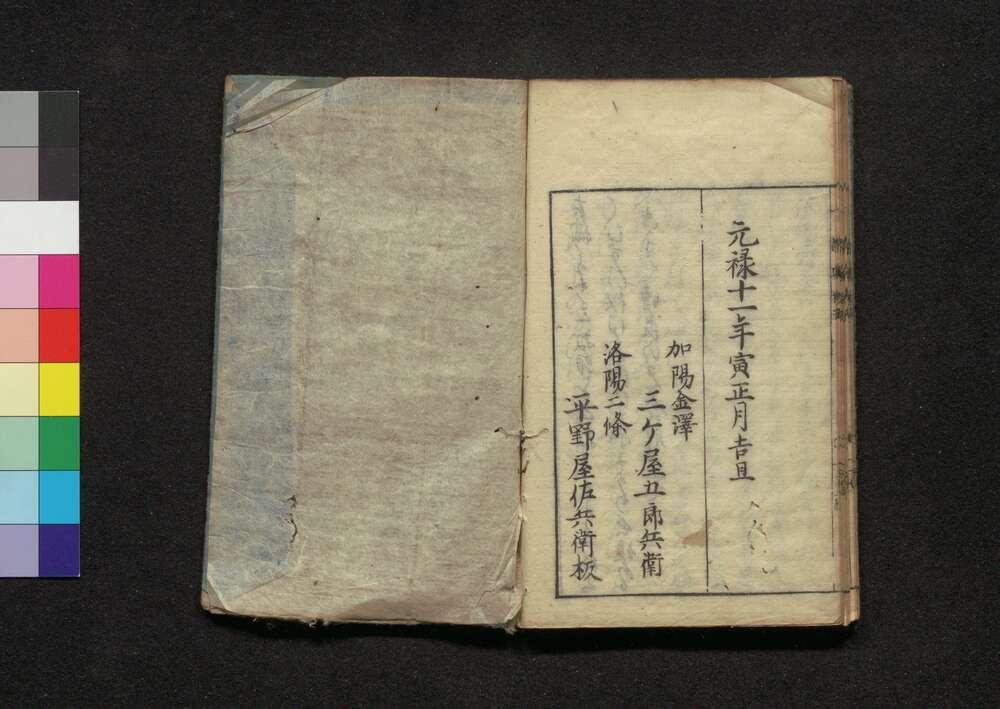 元禄十一年寅正月吉旦
加陽金澤
三ケ屋五郎兵衛
洛陽二條
平野屋佐兵衛板